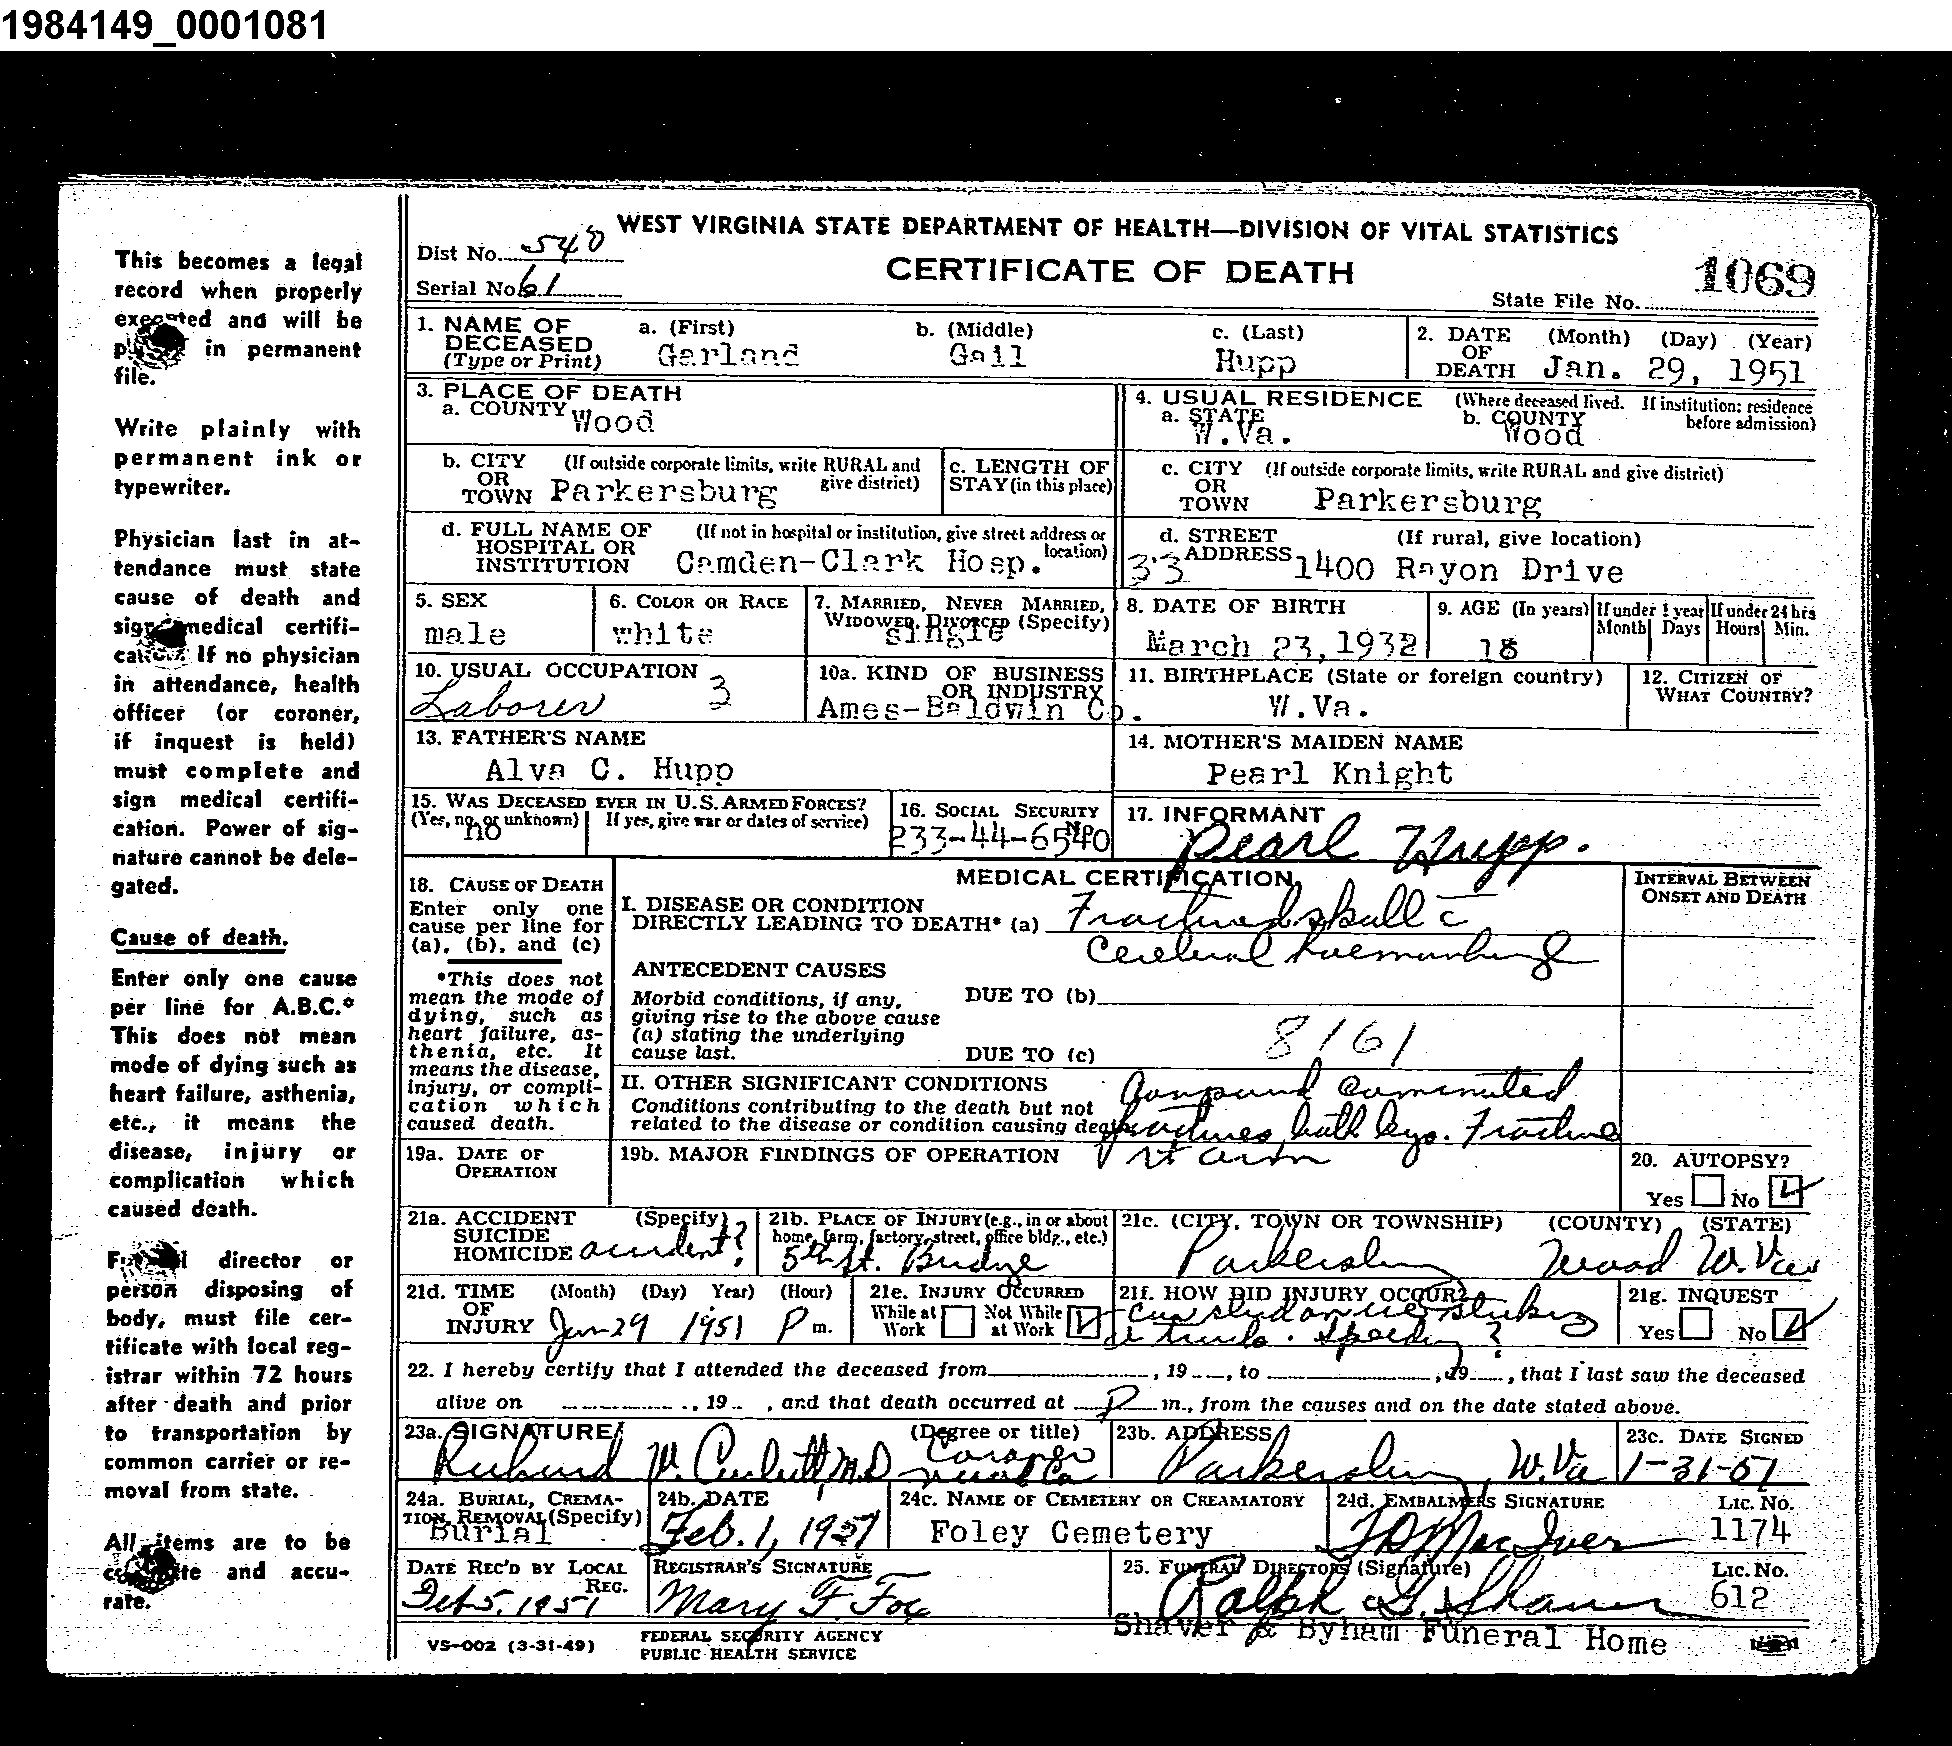 1984149_0001081
This becomes a legal
record when properly
executed and will be
in permanent
file.
Write plainly with
permanent ink or
typewriter.
Physician last in at-
tendance must state
cause of death and
sign medical certifi-
cation. If no physician
in attendance, health
officer (or coroner,
if inquest is held)
must complete and
sign medical certifi-
cation. Power of sig-
nature cannot be dele-
gated.
Cause of death.
Enter only one cause
per line for A.B.C.*
This does not mean
mode of dying such as
heart failure, asthenia,
etc., it means the
disease, injury or
complication which
caused death.
Funeral director or
person disposing of
body, must file cer-
tificate with local reg-
istrar within 72 hours
after death and prior
to transportation by
common carrier or re-
moval from state.
All items are to be
complete and accu-
rate.
WEST VIRGINIA STATE DEPARTMENT OF HEALTH—DIVISION OF VITAL STATISTICS
Dist No. 540
CERTIFICATE OF DEATH
Serial No 61
State File No. 1069
1. NAME OF DECEASED (Type or Print) a. (First) Garland b. (Middle) Gail c. (Last) Hupp
2. DATE OF DEATH (Month) (Day) (Year) Jan. 29, 1951
3. PLACE OF DEATH
a. COUNTY Wood
4. USUAL RESIDENCE (Where deceased lived. If institution: residence before admission)
a. STATE W.Va. b. COUNTY Wood
b. CITY OR TOWN (If outside corporate limits, write RURAL and give district) Parkersburg
c. LENGTH OF STAY (in this place)
c. CITY OR TOWN (If outside corporate limits, write RURAL and give district) Parkersburg
d. FULL NAME OF HOSPITAL OR INSTITUTION (If not in hospital or institution, give street address or location) Camden-Clark Hosp.
d. STREET ADDRESS (If rural, give location) 33 1400 Rayon Drive
5. SEX male
6. COLOR OR RACE white
7. MARRIED, NEVER MARRIED, WIDOWED, DIVORCED (Specify) single
8. DATE OF BIRTH March 23, 1932
9. AGE (In years) 18
If under 1 year Month Days
If under 24 hrs Hours Min.
10. USUAL OCCUPATION Laborer 3
10a. KIND OF BUSINESS OR INDUSTRY Ames-Baldwin Co.
11. BIRTHPLACE (State or foreign country) W.Va.
12. CITIZEN OF WHAT COUNTRY?
13. FATHER'S NAME Alva C. Hupp
14. MOTHER'S MAIDEN NAME Pearl Knight
15. WAS DECEASED EVER IN U.S. ARMED FORCES? (Yes, no, or unknown) no If yes, give war or dates of service)
16. SOCIAL SECURITY No. 233-44-6540
17. INFORMANT Pearl Hupp.
MEDICAL CERTIFICATION
INTERVAL BETWEEN ONSET AND DEATH
18. CAUSE OF DEATH
Enter only one
cause per line for
(a), (b), and (c)
*This does not
mean the mode of
dying, such as
heart failure, as-
thenia, etc. It
means the disease,
injury, or compli-
cation which
caused death.
I. DISEASE OR CONDITION
DIRECTLY LEADING TO DEATH* (a) Fractured skull c̄
Cerebral haemorrhage
ANTECEDENT CAUSES
Morbid conditions, if any,
giving rise to the above cause
(a) stating the underlying
cause last.
DUE TO (b)
8161
DUE TO (c)
II. OTHER SIGNIFICANT CONDITIONS
Conditions contributing to the death but not
related to the disease or condition causing death.
Compound comminuted
fractures both legs. Fracture
rt arm
19a. DATE OF OPERATION
19b. MAJOR FINDINGS OF OPERATION
20. AUTOPSY? Yes No
21a. ACCIDENT SUICIDE HOMICIDE (Specify) accident?
21b. PLACE OF INJURY (e.g., in or about home, farm, factory, street, office bldg., etc.) 5th St. Bridge
21c. (CITY, TOWN OR TOWNSHIP) (COUNTY) (STATE) Parkersburg Wood W. Va
21d. TIME OF INJURY (Month) (Day) Year) (Hour) Jan 29 1951 P m.
21e. INJURY OCCURRED While at Work Not While at Work
21f. HOW DID INJURY OCCUR? Car slid on ice striking
a truck. Speeding?
21g. INQUEST Yes No
22. I hereby certify that I attended the deceased from , 19 , to , 19 , that I last saw the deceased
alive on , 19 , and that death occurred at P m., from the causes and on the date stated above.
23a. SIGNATURE (Degree or title) Richard W. M.D. Coroner Wood Co
23b. ADDRESS Parkersburg, W.Va
23c. DATE SIGNED 1-31-51
24a. BURIAL, CREMATION, REMOVAL (Specify) Burial
24b. DATE Feb. 1, 1951
24c. NAME OF CEMETERY OR CREAMATORY Foley Cemetery
24d. EMBALMERS SIGNATURE MacIver Lic. No. 1174
DATE REC'D BY LOCAL REG. Feb 5, 1951
REGISTRAR'S SIGNATURE Mary F. Fox
25. FUNERAL DIRECTORS (Signature) Ralph G. Shaver Lic. No. 612
Shaver & Byham Funeral Home
VS-002 (3-31-49)
FEDERAL SECURITY AGENCY
PUBLIC HEALTH SERVICE